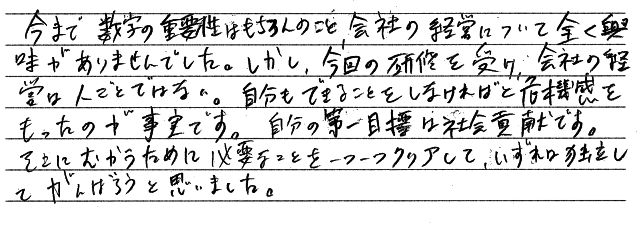 今まで数字の重要性はもちろんのこと、会社の経営について全く興
味がありませんでした。しかし、今回の研修を受け、会社の経
営は人ごとではない。自分もできることをしなければと危機感を
もったのが事実です。自分の第一目標は社会貢献です。
そこにむかうために必要なことを一つ一つクリアして、いずれは独立し
てがんばろうと思いました。